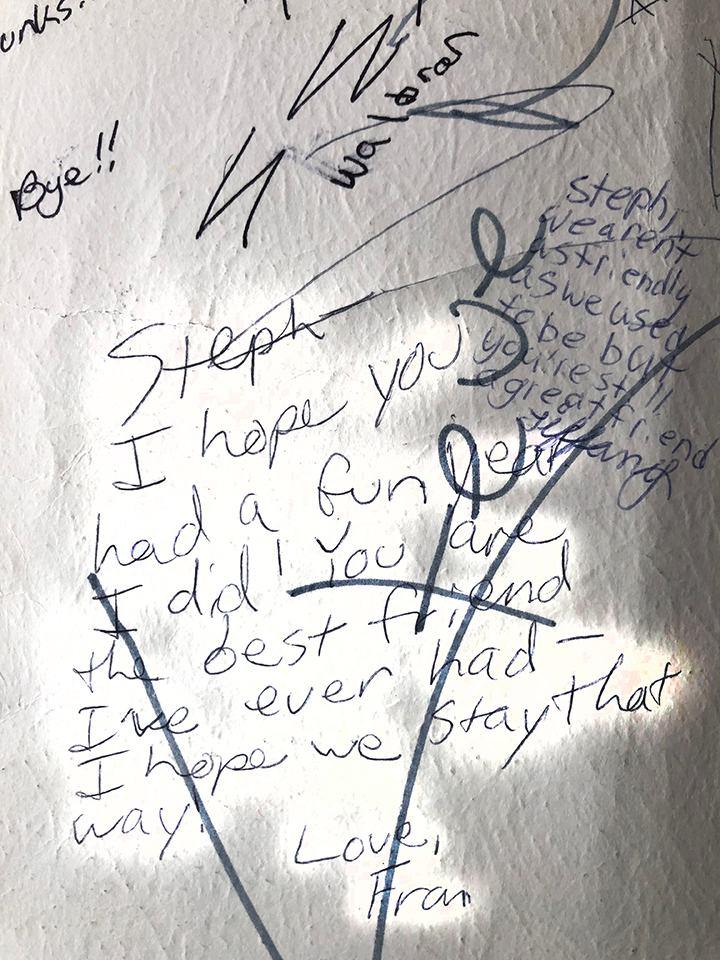 unks.
Bye!!
Steph,
we arent
as friendly
as we used
to be but
you're still
a great friend
Steph
I hope you
had a fun year
I did! You are
the best friend
I've ever had –
I hope we stay that
way!
Love,
Fran